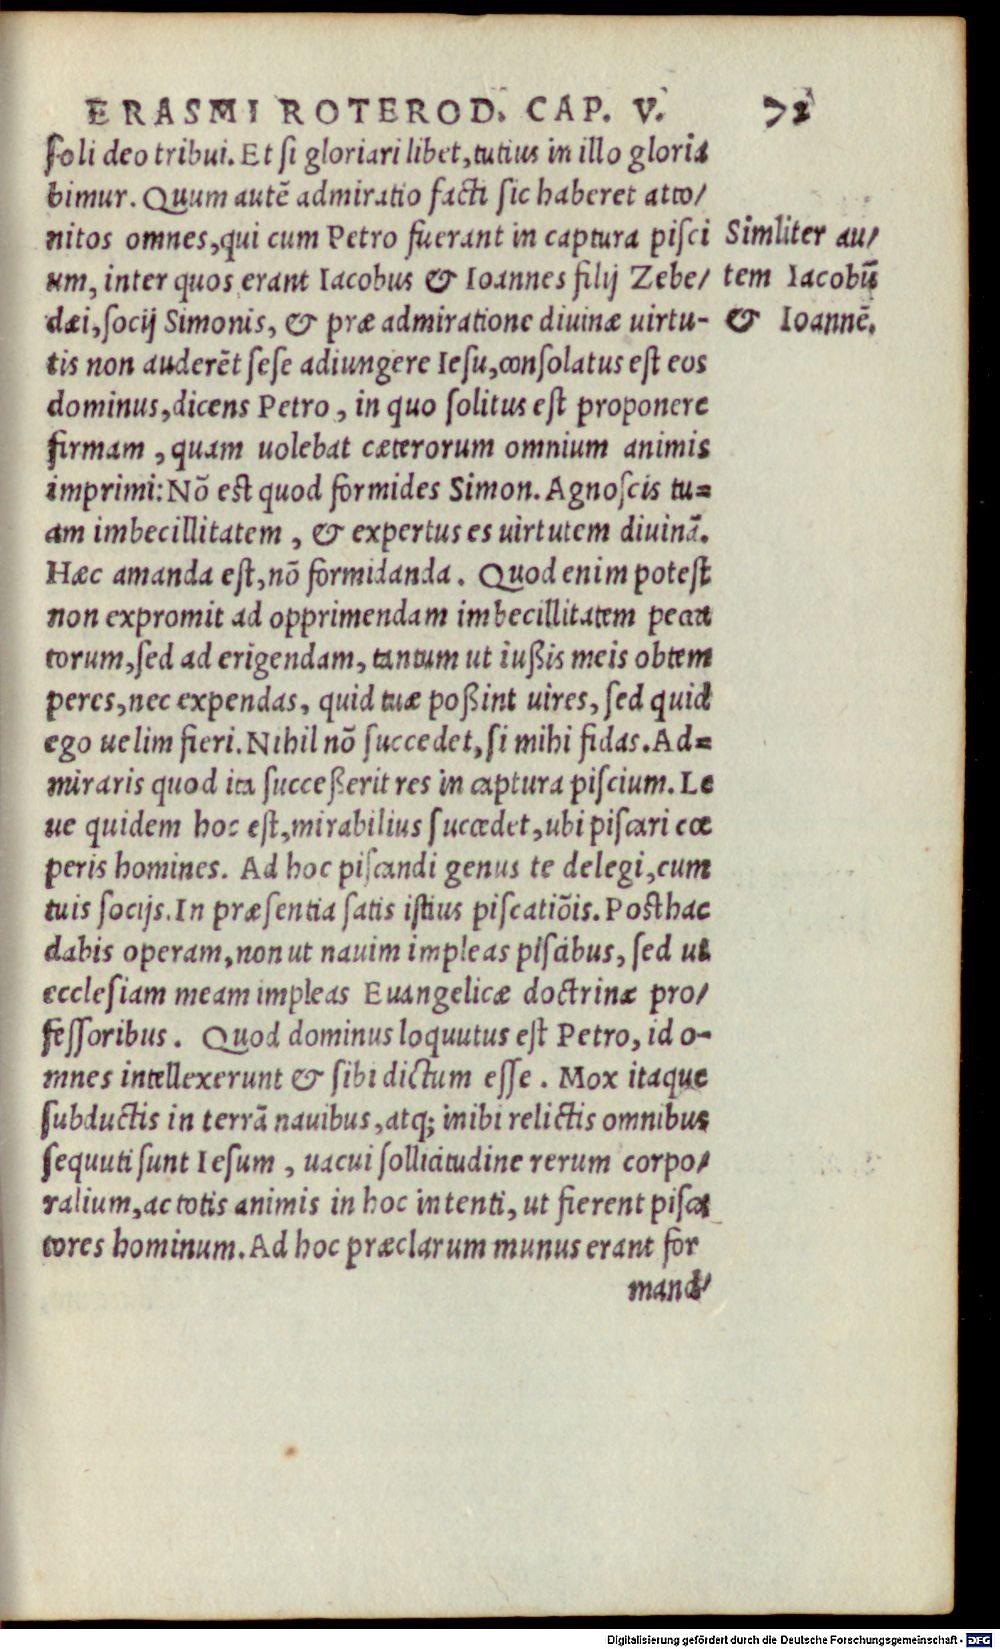 ERASMI ROTEROD. CAP. V. 72
soli deo tribui. Et si gloriari libet, tutius in illo gloria
bimur. Quum autẽ admiratio facti sic haberet atto/
nitos omnes, qui cum Petro fuerant in captura pisci
um, inter quos erant Iacobus & Ioannes filij Zebe/
dæi, socij Simonis, & præ admiratione diuinæ uirtu-
tis non auderẽt sese adiungere Iesu, consolatus est eos
dominus, dicens Petro, in quo solitus est proponere
firmam, quam uolebat cæterorum omnium animis
imprimi: Nõ est quod formides Simon. Agnoscis tu=
am imbecillitatem, & expertus es uirtutem diuinã.
Hæc amanda est, nõ formidanda. Quod enim potest
non expromit ad opprimendam imbecillitatem pecca
torum, sed ad erigendam, tantum ut iußis meis obtem
peres, nec expendas, quid tuæ poßint uires, sed quid
ego uelim fieri. Nihil nõ succedet, si mihi fidas. Ad=
miraris quod ita succeßerit res in captura piscium. Le
ue quidem hoc est, mirabilius succedet, ubi piscari cœ
peris homines. Ad hoc piscandi genus te delegi, cum
tuis socijs. In præsentia satis istius piscatiõis. Posthac
dabis operam, non ut nauim impleas piscibus, sed ut
ecclesiam meam impleas Euangelicæ doctrinæ pro/
fessoribus. Quod dominus loquutus est Petro, id o-
mnes intellexerunt & sibi dictum esse. Mox itaque
subductis in terrã nauibus, atq; inibi relictis omnibus
sequuti sunt Iesum, uacui sollicitudine rerum corpo/
ralium, ac totis animis in hoc intenti, ut fierent pisca
tores hominum. Ad hoc præclarum munus erant for
mand/
Simliter au/
tem Iacobũ
& Ioannẽ.
Digitalisierung gefördert durch die Deutsche Forschungsgemeinschaft - DFG